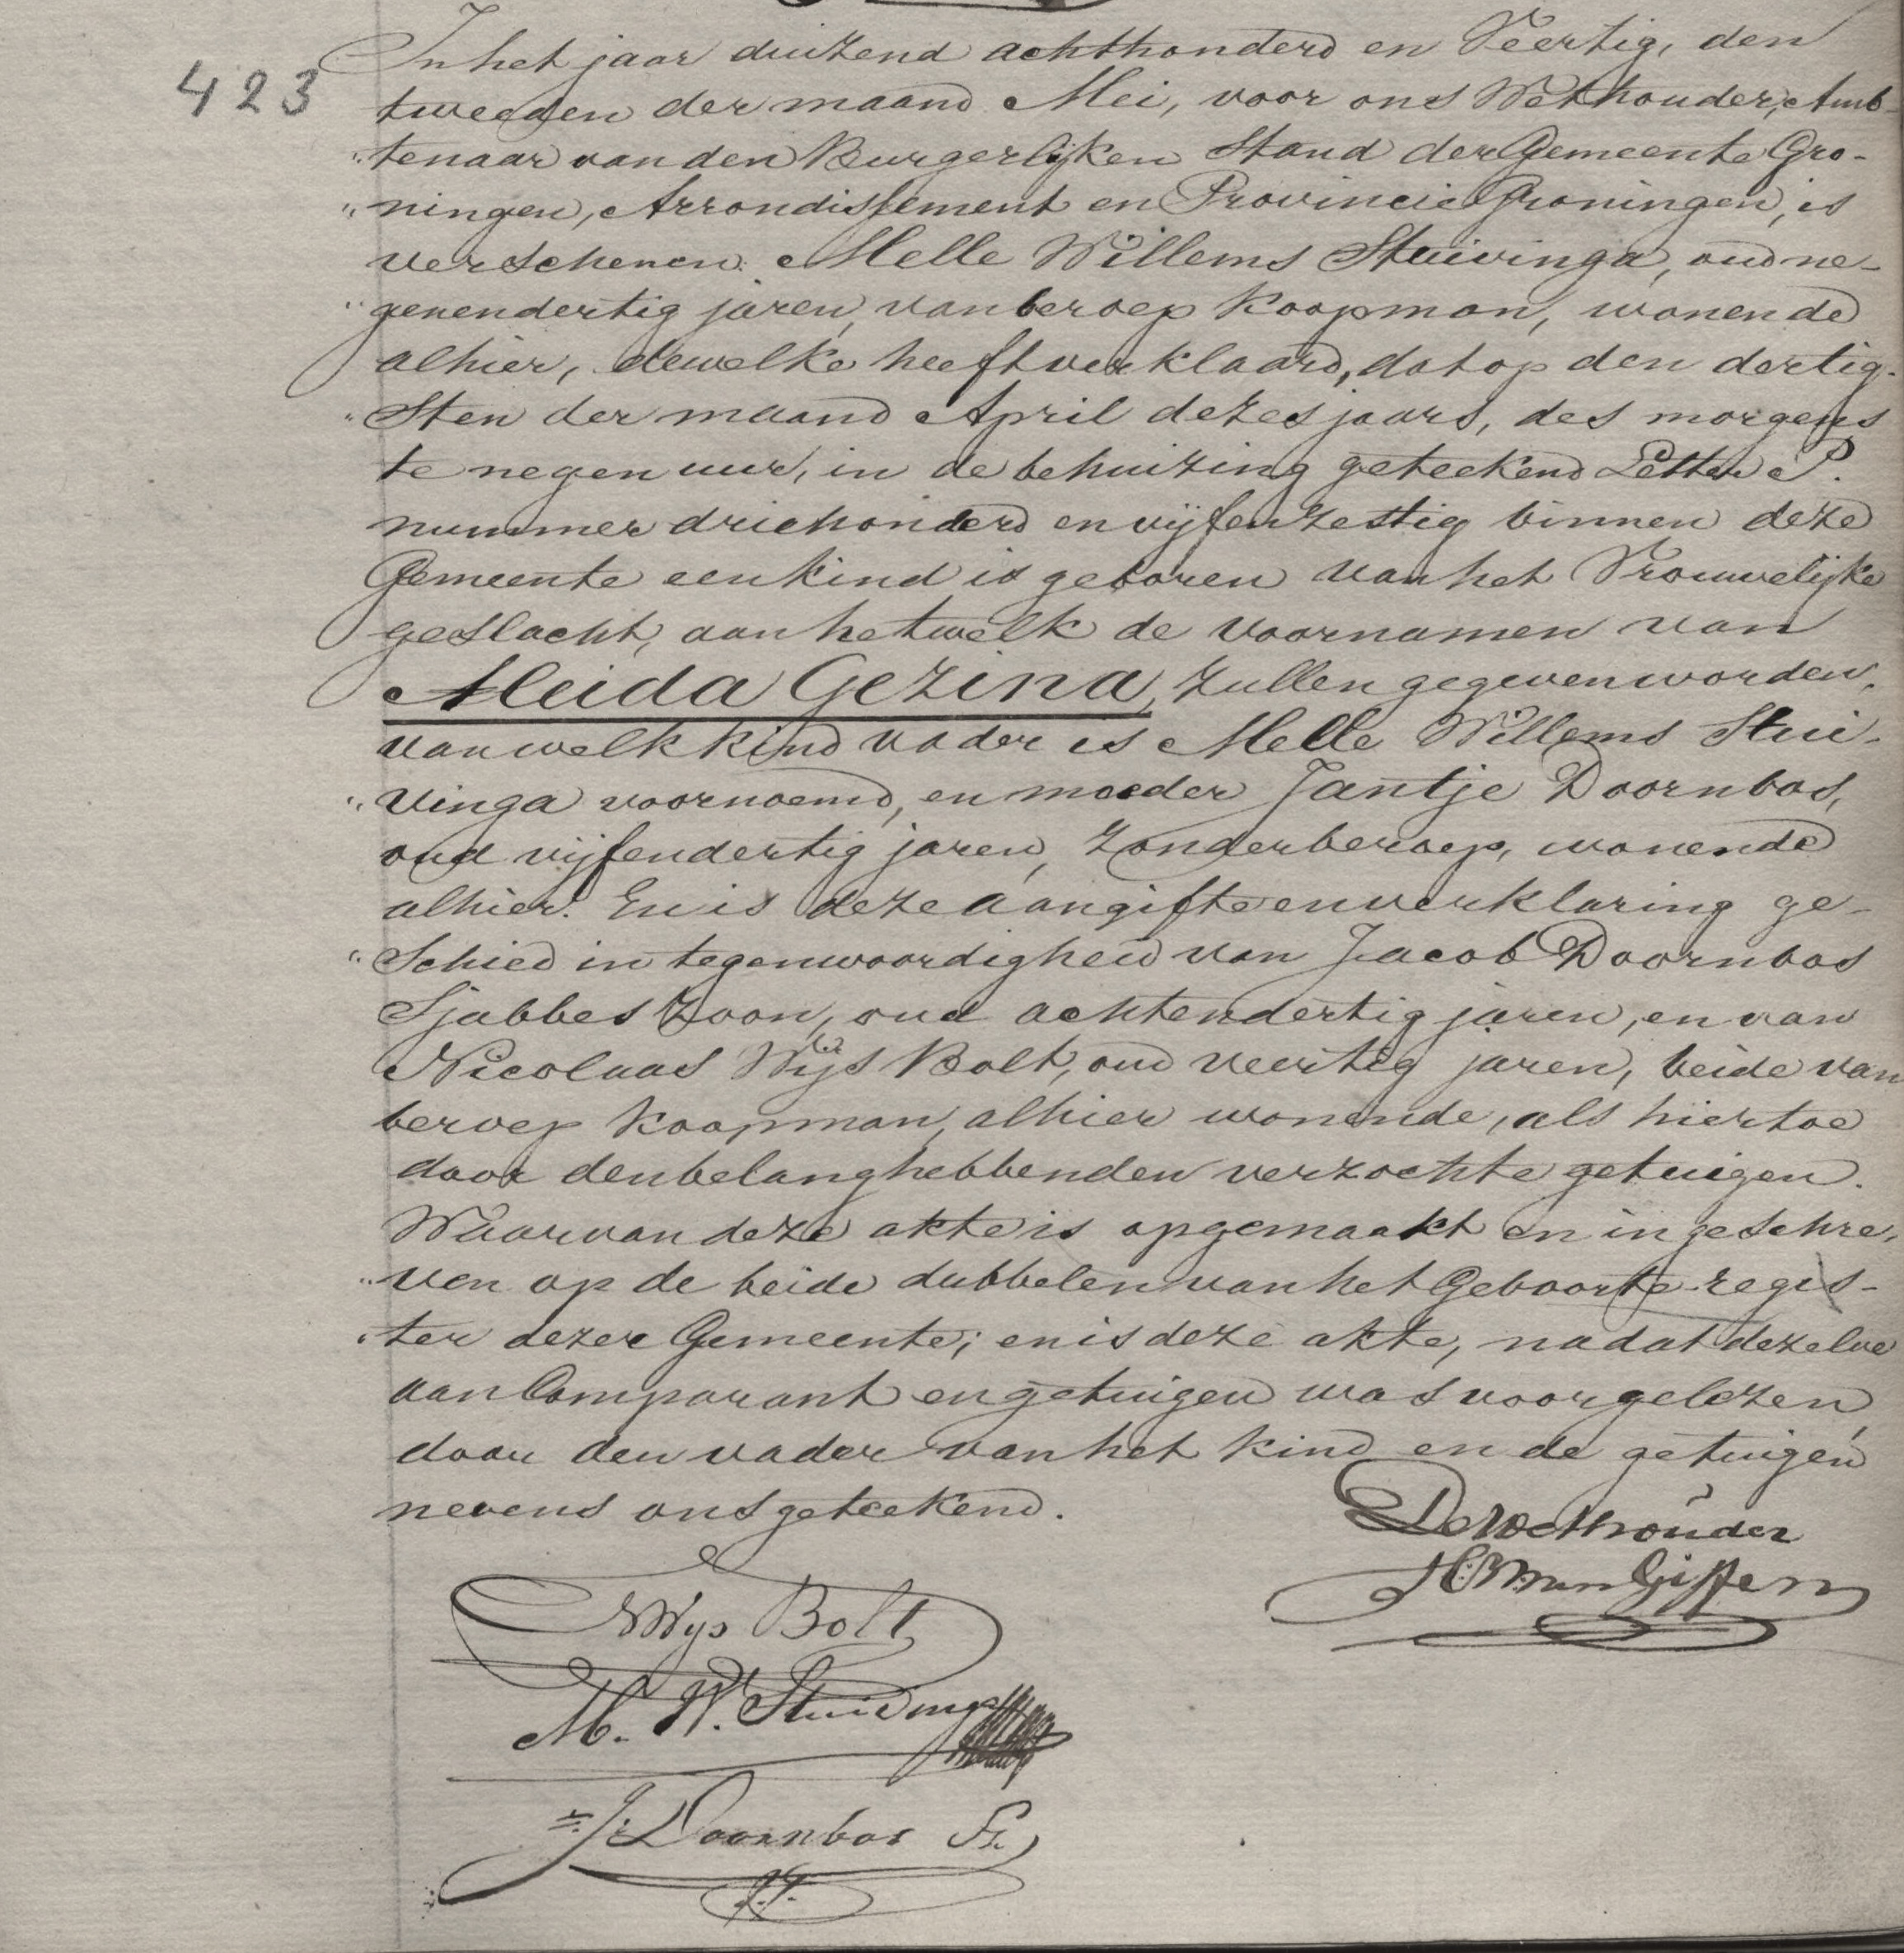 423
In het jaar duizend achthonderd en Veertig, den
tweeden der maand Mei, voor ons Wethouder, Amb-
"tenaar van den Burgerlijken Stand der Gemeente Gro-
"ningen, Arrondissement en Provincie Groningen, is
verschenen Melle Willems Stuivinga, oud ne-
"genendertig jaren, van beroep Koopman, wonende
alhier, dewelke heeft verklaard, dat op den dertig-
"sten der maand April dezes jaars, des morgens
te negen uur, in de behuizing geteekend Letter P.
nummer driehonderd en vijfenzestig binnen deze
Gemeente een kind is geboren van het Vrouwelijke
geslacht, aan hetwelk de voornamen van
Aleida Gezina, zullen gegeven worden,
van welk kind vader is Melle Willems Stui-
"vinga voornoemd, en moeder Jantje Doornbos,
oud vijfendertig jaren, zonder beroep, wonende
alhier. En is deze aangifte en verklaring ge-
"schied in tegenwoordigheid van Jacob Doornbos
Sjabbes Zoon, oud achtendertig jaren, en van
Nicolaas Wijs Bolt, oud veertig jaren, beide van
beroep Koopman, alhier wonende, als hiertoe
door den belanghebbenden verzochte getuigen.
Waarvan deze akte is opgemaakt en ingeschre-
"ven op de beide dubbelen van het Geboorte-regis-
"ter dezer Gemeente; en is deze akte, nadat dezelve
aan Comparant en getuigen was voorgelezen,
door den vader van het kind en de getuigen
nevens ons geteekend.
De Wethouder
van Giffen
NWijs Bolt
M. W. Stuivinga
J. Doornbos Sz.